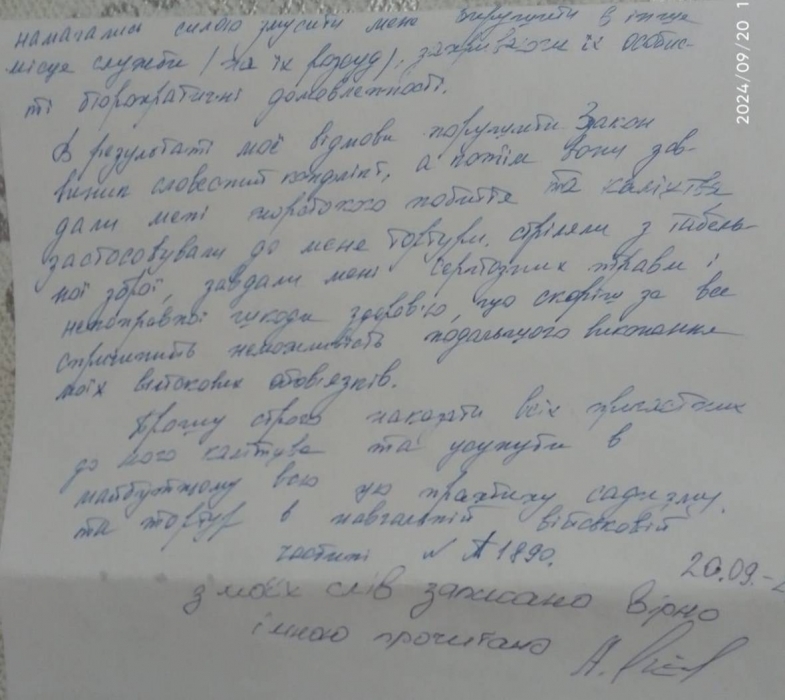 намагались силою змусити мене вирушити в інше
місце служби (на їх розсуд), закриваючи їх особис-
ті бюрократичні домовленості.
В результаті моєї відмови порушити Закон
виник словесний конфлікт, а потім вони зав-
дали мені жорстокого побиття та каліцтва
застосовували до мене тортури, стріляли з табель-
ної зброї, завдали мені серйозних травм і
непоправної шкоди здоров'ю, що скоріш за все
спричинить неможливість подальшого виконання
моїх військових обов'язків.
Прошу строго наказати всіх причетних
до мого каліцтва та усунути в
майбутньому всю цю практику садизму
та тортур в навчальній військовій
частині № А1890.
20.09.
з моїх слів записано вірно
і мною прочитано
2024/09/20 1